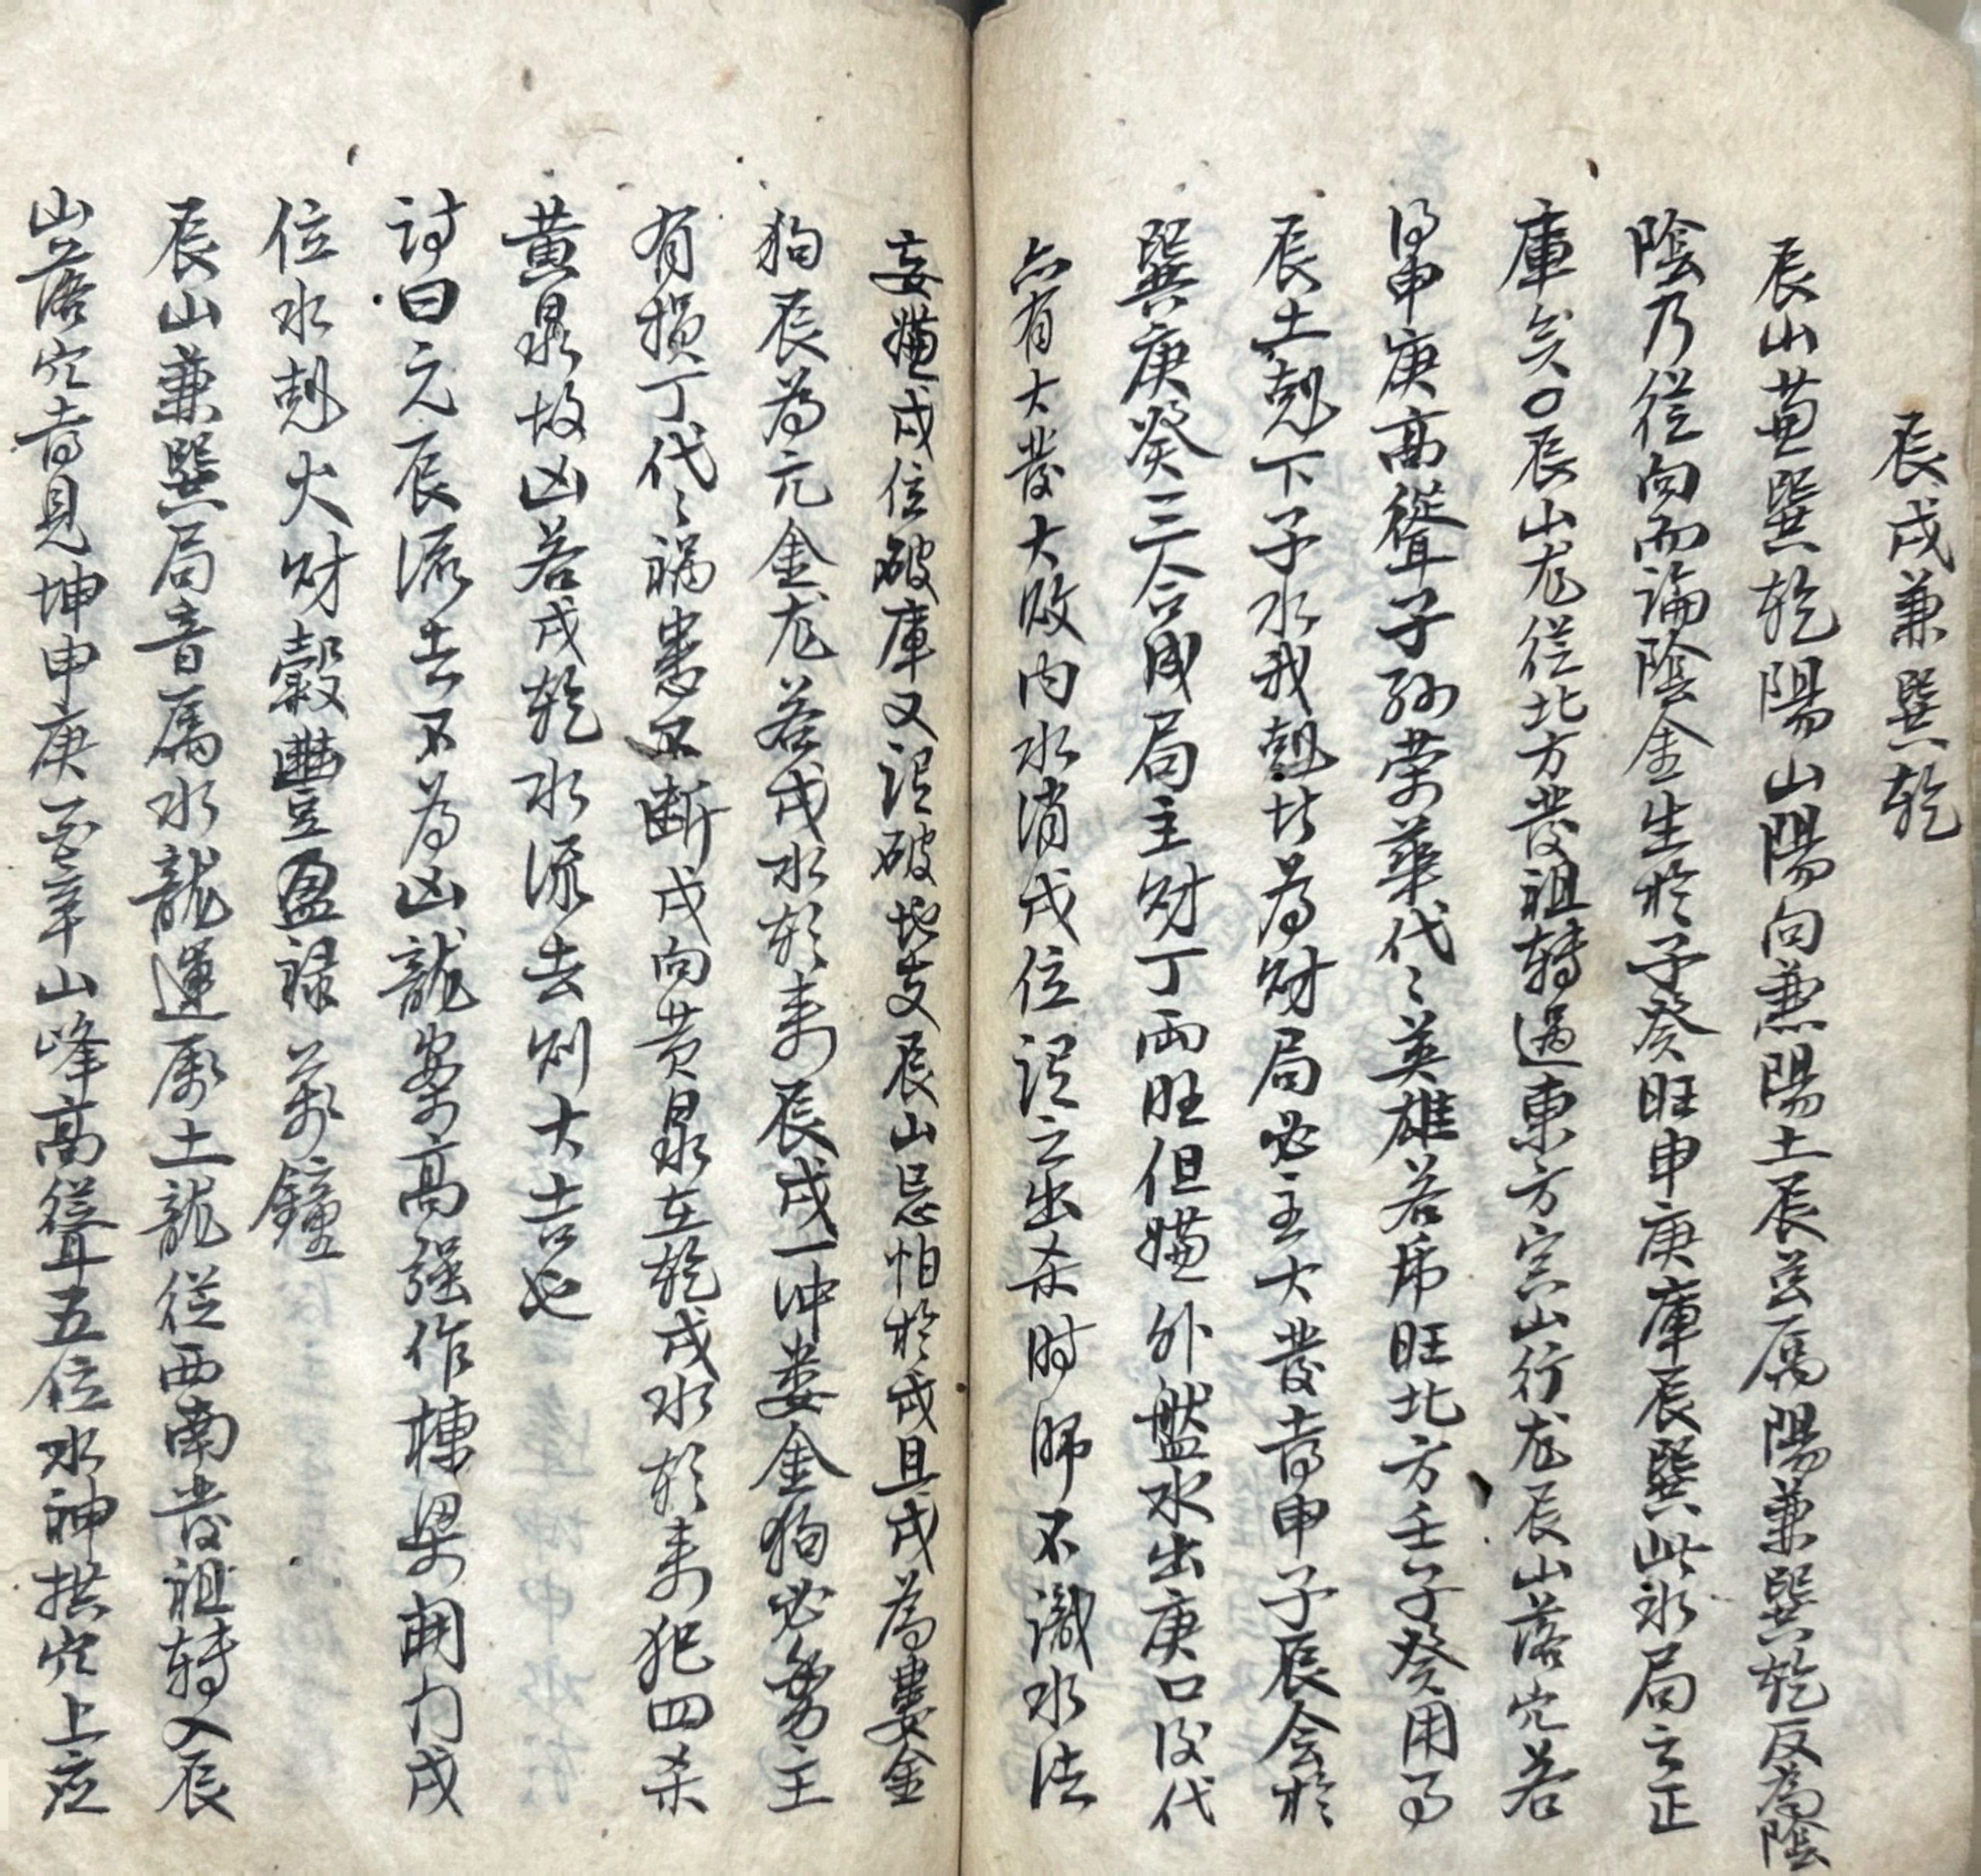 辰戌兼巽乾
辰山兼巽乾陽山陽向兼陽土辰並属陽兼巽乾反為陰
陰乃從向而論陰金生於子癸旺申庚庫辰巽此水局之正
庫矣○辰山龙從北方發祖轉過東方宗山行龙辰山落穴若
得申庚高聳子孫荣華代〻英雄若帰旺北方壬子癸用得
辰土克下子水我剋者為财局必主大發者申子辰会於
巽庚癸三合成局主财丁両旺但嫌外盤水出庚口後代
亦有大發大敗内水消戌位误之出杀时師不識水法
妄嫌戌位破庫又误破地支辰山忌怕於戌且戌為婁金
狗辰為亢金龙若戌水朝来辰戌一冲娄金狗必勞主
有损丁代〻禍患不断戌向黄泉在乾戌水朝来犯四杀
黄泉故凶若戌乾水流去則大吉也
詩曰元辰流去不為凶龍案高强作棟梁開门戌
位水剋火财穀豐盈禄萬鐘
辰山兼巽局音属水龍運属土龍從西南發祖轉入辰
山落穴者見坤申庚酉辛山峰高聳五位水神拱穴上应